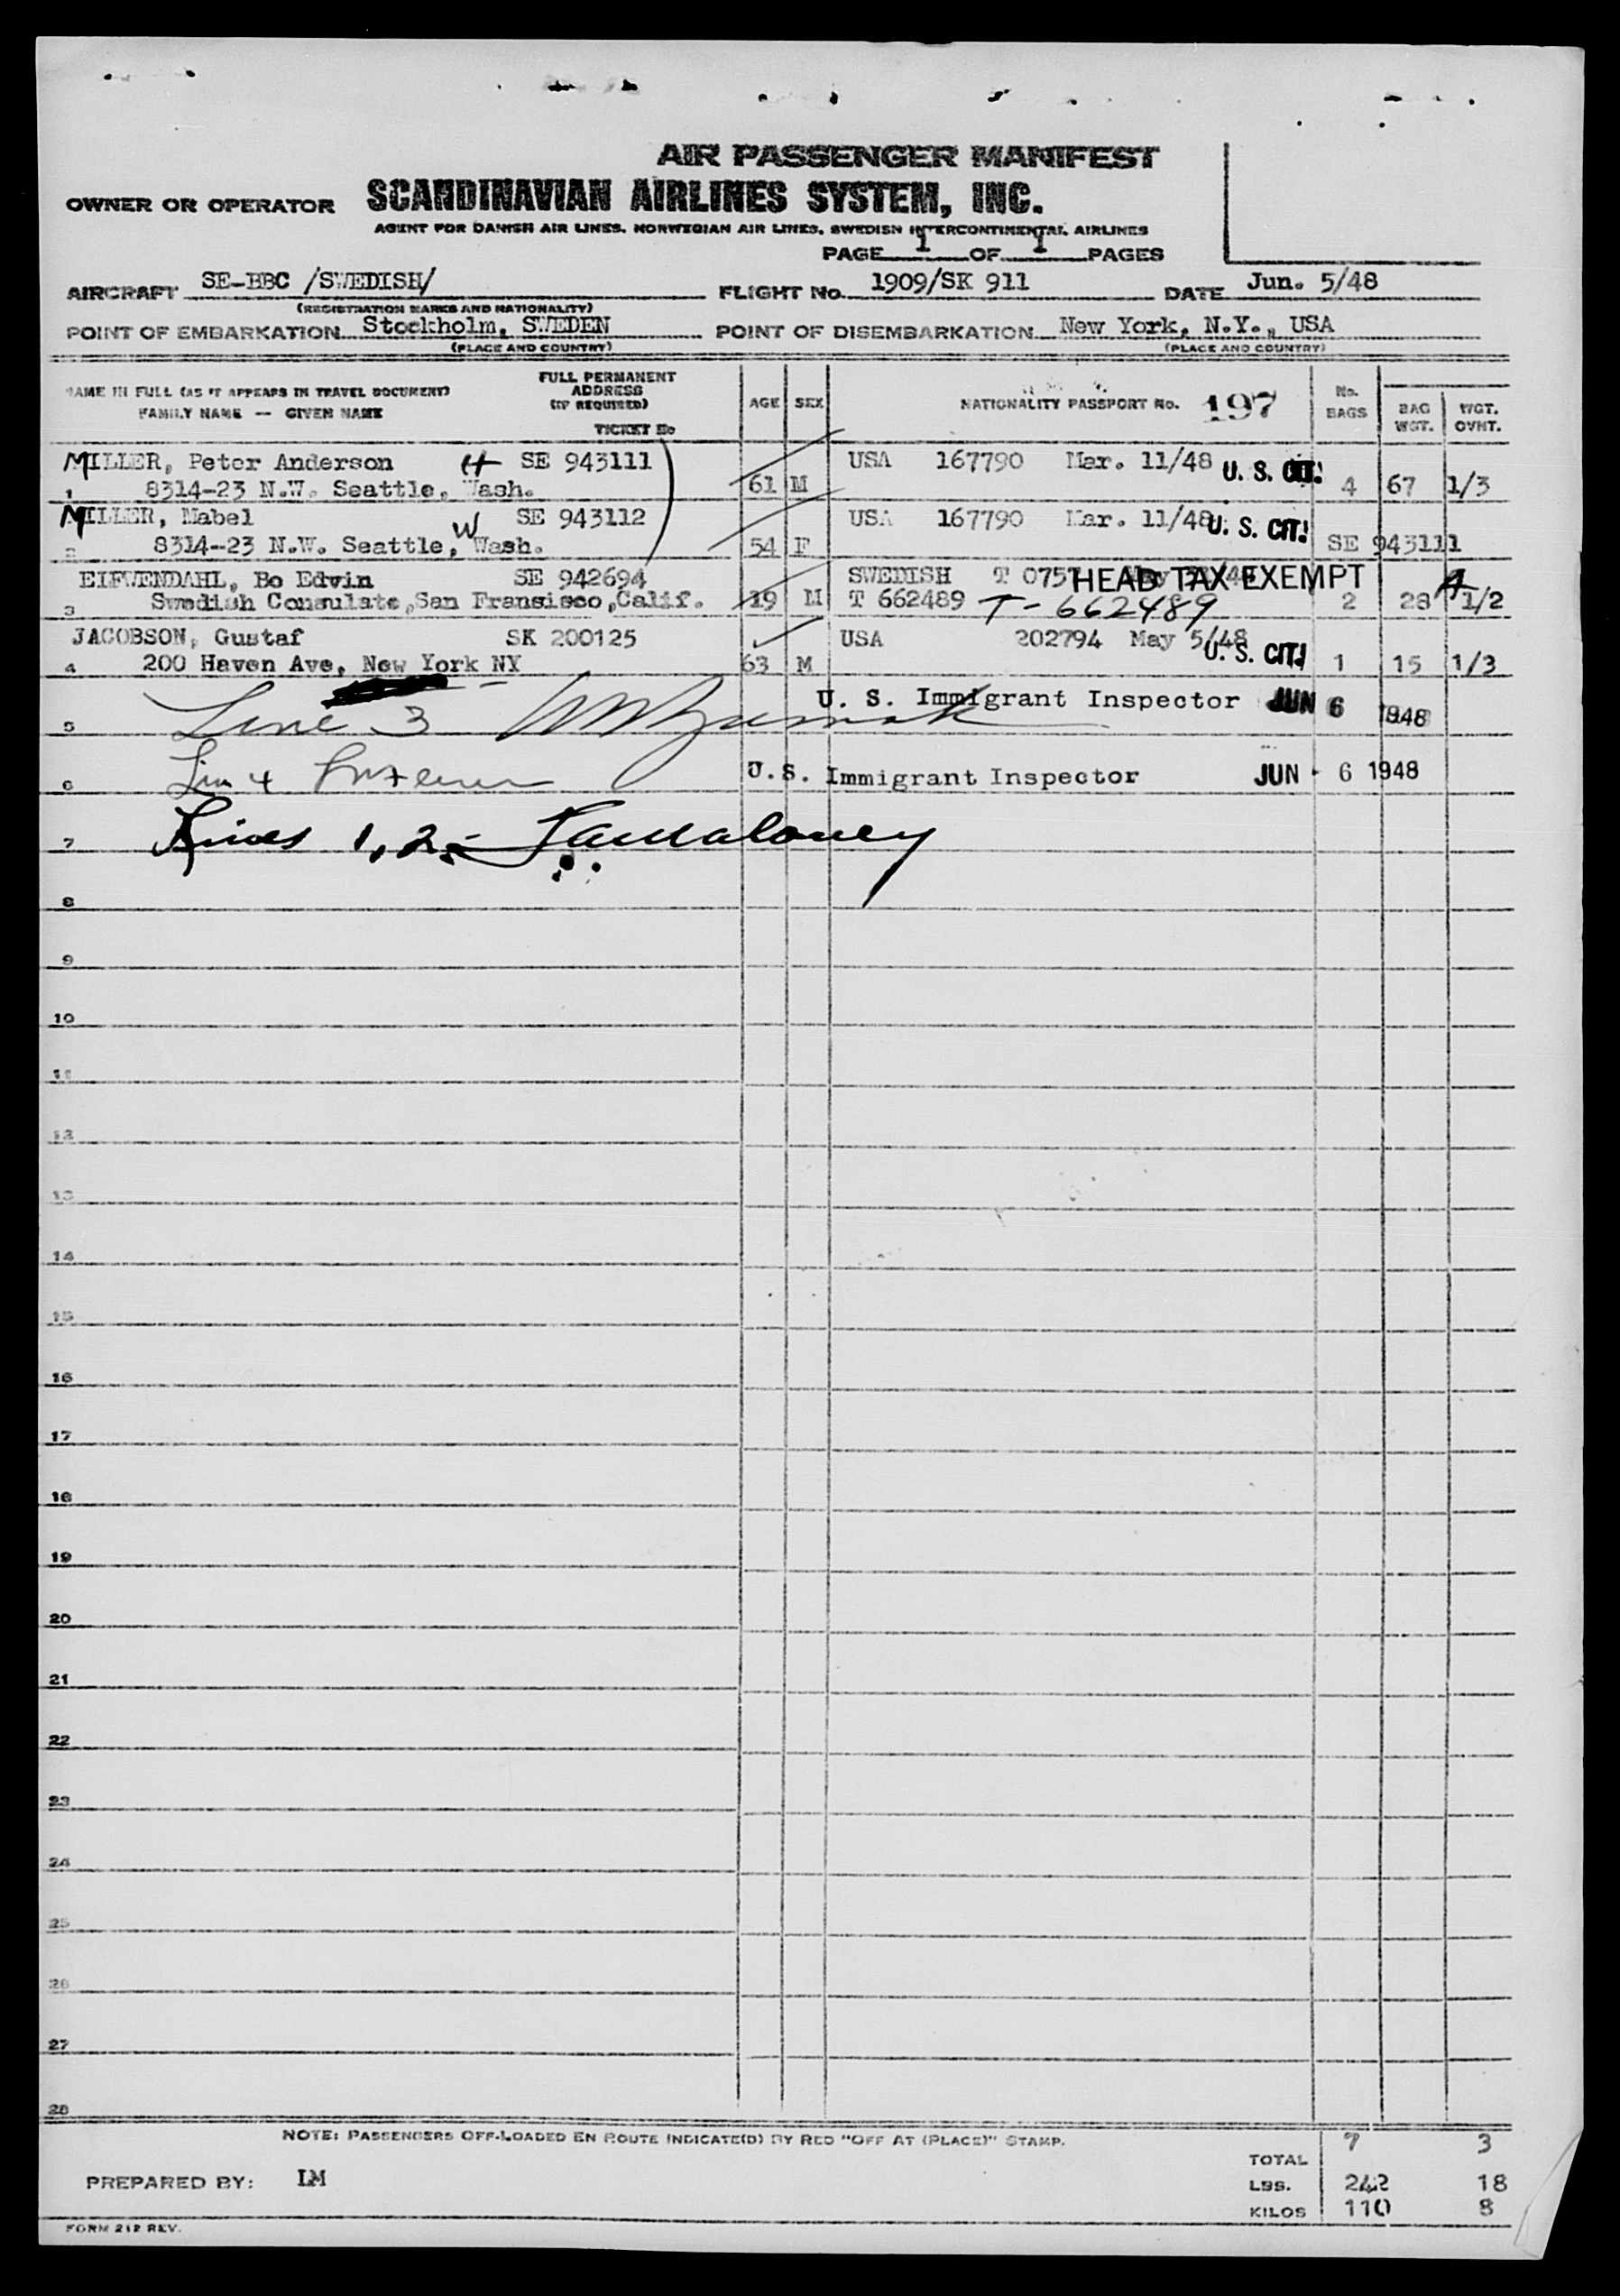 AIR PASSENGER MANIFEST
OWNER OR OPERATOR SCANDINAVIAN AIRLINES SYSTEM, INC.
AGENT FOR DANISH AIR LINES, NORWEGIAN AIR LINES, SWEDISH INTERCONTINENTAL AIRLINES
PAGE 1 OF 1 PAGES
AIRCRAFT SE-BBC /SWEDISH/ FLIGHT No. 1909/SK 911 DATE Jun. 5/48
(REGISTRATION MARKS AND NATIONALITY)
POINT OF EMBARKATION Stockholm, SWEDEN POINT OF DISEMBARKATION New York, N.Y., USA
(PLACE AND COUNTRY) (PLACE AND COUNTRY)
NAME IN FULL (AS IT APPEARS IN TRAVEL DOCUMENT) FULL PERMANENT ADDRESS (IF REQUIRED) AGE SEX NATIONALITY PASSPORT No. 197 No. BAGS BAG WGT. WGT. OVHT.
FAMILY NAME — GIVEN NAME
TICKET No
MILLER, Peter Anderson H SE 943111 USA 167790 Mar. 11/48 U. S. CIT.
1 8314-23 N.W. Seattle, Wash. 61 M 4 67 1/3
MILLER, Mabel W SE 943112 USA 167790 Mar. 11/48 U. S. CIT.
2 8314-23 N.W. Seattle, Wash. 54 F SE 943111
EIFWENDAHL, Bo Edvin SE 942694 SWEDISH T 0757 HEAD TAX EXEMPT A
3 Swedish Consulate, San Fransisco, Calif. 19 M T 662489 T-662489 2 28 1/2
JACOBSON, Gustaf SK 200125 USA 202794 May 5/48 U. S. CIT.
4 200 Haven Ave, New York NY 63 M 1 15 1/3
U. S. Immigrant Inspector JUN 6 1948
5 Line 3
6 Line 4 U.S. Immigrant Inspector JUN - 6 1948
7 Lines 1, 2, Maloney
8
9
10
11
12
13
14
15
16
17
18
19
20
21
22
23
24
25
26
27
28
NOTE: PASSENGERS OFF-LOADED EN ROUTE INDICATE(D) BY RED "OFF AT (PLACE)" STAMP.
TOTAL 7 3
PREPARED BY: LM LBS. 242 18
KILOS 110 8
FORM 212 REV.